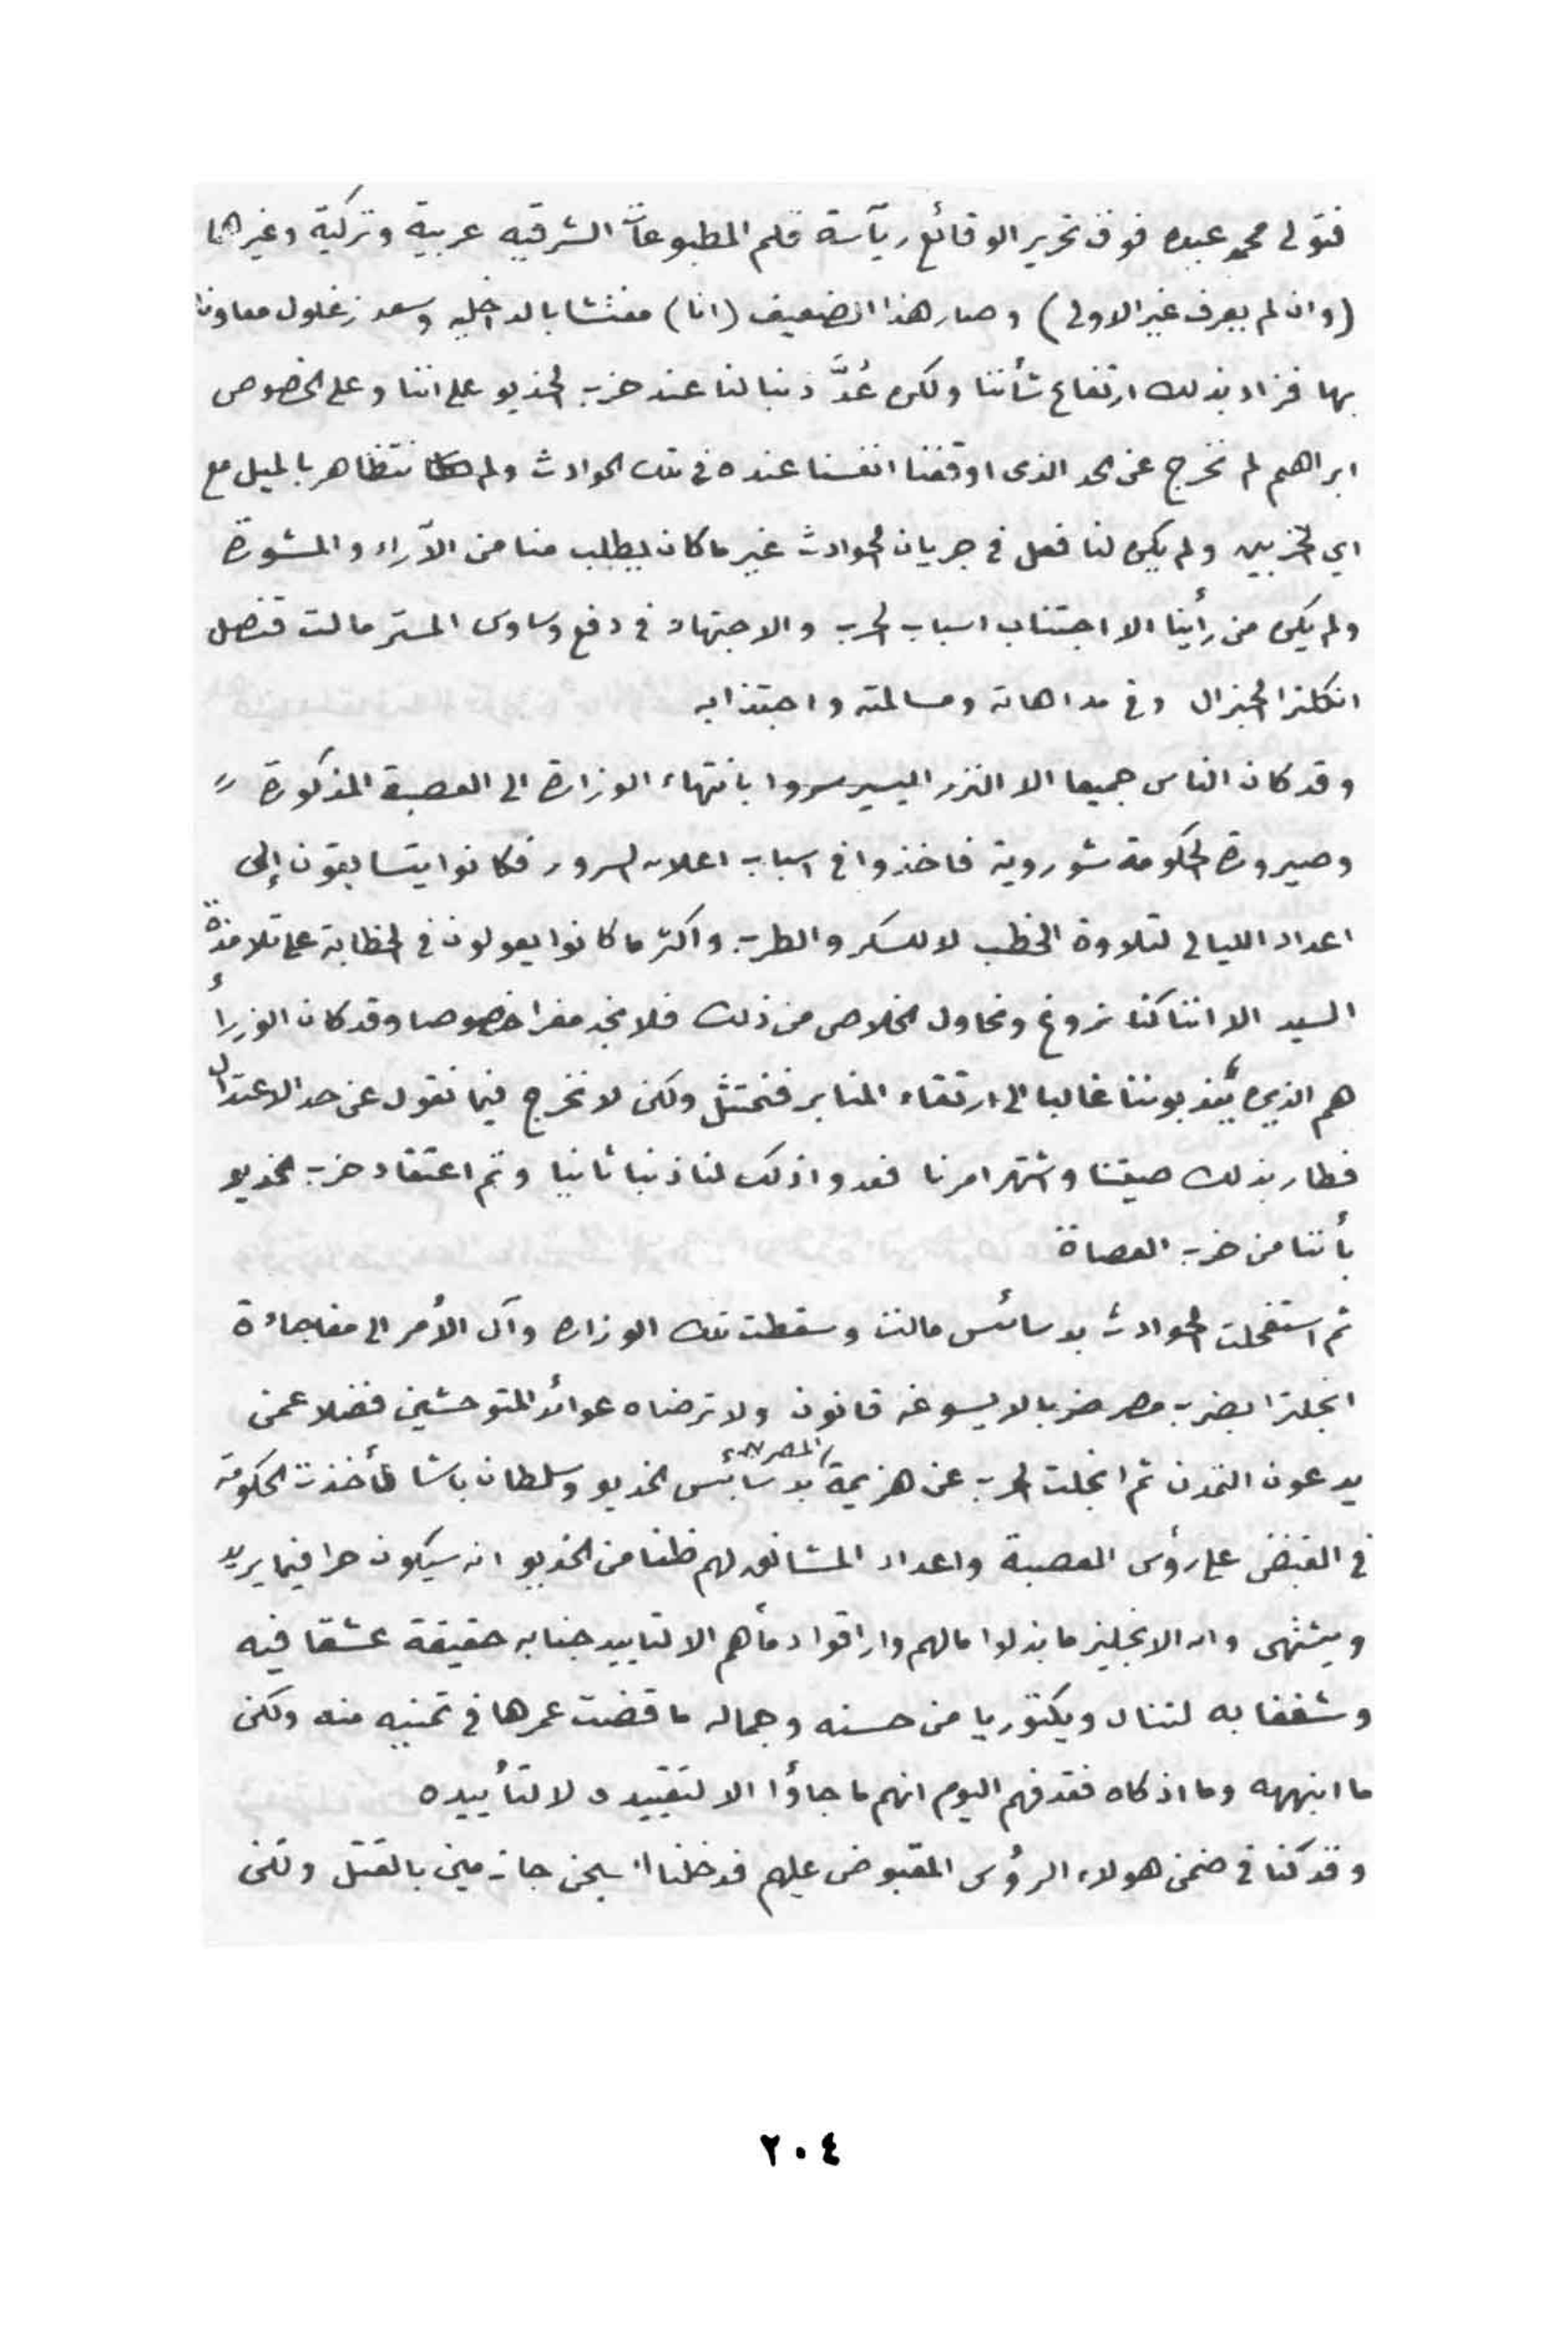 فتولى محمد عبده فوق تحرير الوقائع ريآسة قلم المطبوعات الشرقيه عربية وتركية وغيرها
(وان لم يعرف غير الاولى) وصار هذا الضعيف (انا) مفتشا بالداخليه وسعد زغلول معاونا
بها فزاد بذلك ارتفاع شأننا ولكن عُدَّ ذنبا لنا عند حزب الخديو على اننا وعلى الخصوص
ابراهيم لم نخرج عن الحد الذى اوقفنا انفسنا عنده فى تلك الحوادث ولم نتظاهر بالميل مع
اي الحزبين ولم يكن لنا فعل فى جريان الحوادث غير ما كان يطلب منا من الآراء والمشورة
ولم يكن من رأينا الا اجتناب اسباب الحرب والاجتهاد فى دفع وساوس المستر مالت قنصل
انكلترا الجنرال وفى مداهاته ومسالمته واجتذابه
وقد كان الناس جميعا الا النزر اليسير سروا بانتهاء الوزارة الى العصبة المذكورة
وصيرورة الحكومة شوروية فاخذوا فى اسباب اعلان السرور فكانوا يتسابقون إلى
اعداد الليالى لتلاوة الخطب لا للسكر والطرب واكثر ما كانوا يعولون فى الخطابة على تلامذة
السيد الا اننا كنا نروغ ونحاول الخلاص من ذلك فلا نجد مفرا خصوصا وقد كان الوزراء
هم الذين يندبوننا غالبا الى ارتقاء المنابر فنمتثل ولكن لا نخرج فيما نقول عن حد الاعتدال
فطار بذلك صيتنا واشتهر امرنا فعدوا ذلك لنا ذنبا ثانيا وتم اعتقاد حزب الخديو
بأننا من حزب العصاة
ثم استفحلت الحوادث بدسائس مالت وسقطت تلك الوزارة وآل الأمر الى مفاجاءة
انجلترا بضرب مصر ضربا لا يسوغه قانون ولا ترضاه عوائد المتوحشين فضلا عمن
يدعون التمدن ثم انجلت الحرب عن هزيمة المصريين بدسائس الخديو وسلطان باشا فأخذت الحكومة
فى القبض على رؤس العصبة واعداد المشانق لهم ظنا من الخديو انه سيكون حرا فيما يريد
ويشتهى وان الانجليز ما بذلوا مالهم واراقوا دمأهم الا لتاييد جنابه حقيقة عشقا فيه
وشغفا به لتنال ويكتوريا من حسنه وجماله ما قضت عمرها فى تمنيه منه ولكن
ما انبهه وما اذكاه فقد فهم اليوم انهم ما جاؤا الا لتقييده لا لتأييده
وقد كنا فى ضمن هولاء الرؤس المقبوض عليهم فدخلنا السجن جازمين بالقتل ولكن
٢٠٤